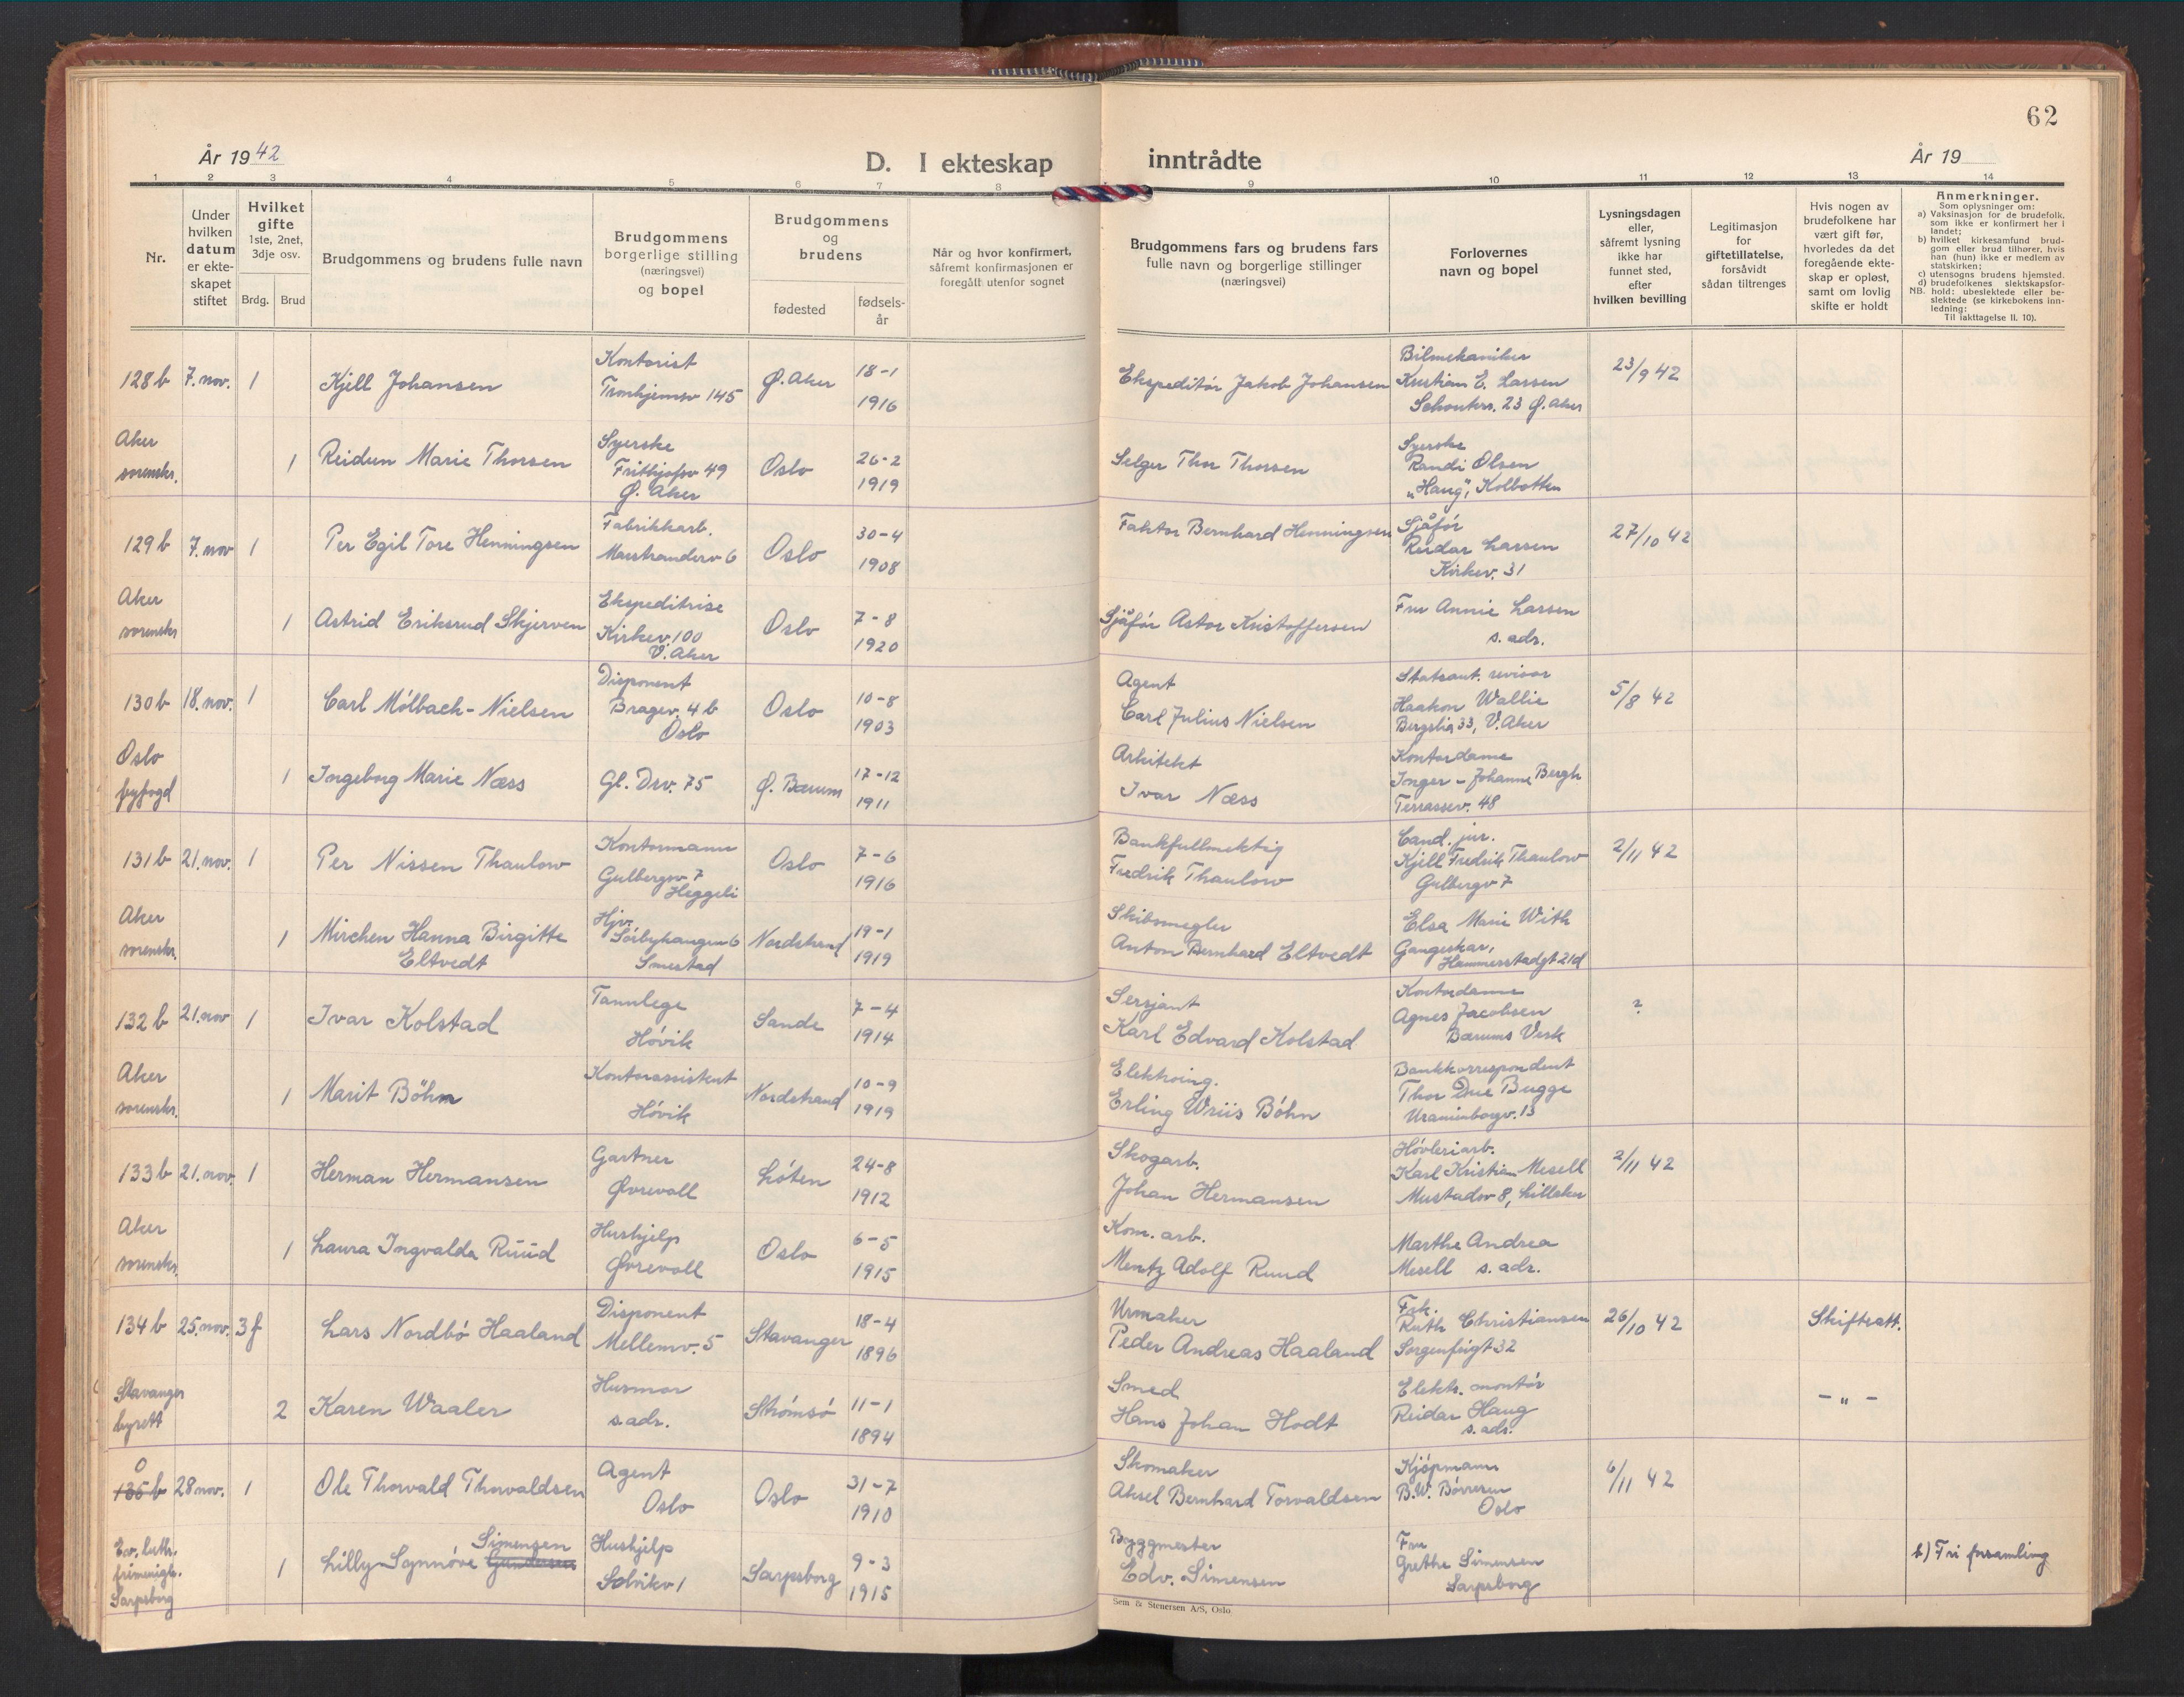 62
År 1942
D. I ekteskap
inntrådte
År 19
1 2 3 4 5 6 7 8 9 10 11 12 13 14
Nr.
Under
hvilken
datum
er ekte-
skapet
stiftet
Hvilket
gifte
1ste, 2net,
3dje osv.
Brdg. Brud
Brudgommens og brudens fulle navn
Brudgommens
borgerlige stilling
(næringsvei)
og bopel
Brudgommens
og
brudens
fødested
fødsels-
år
Når og hvor konfirmert,
såfremt konfirmasjonen er
foregått utenfor sognet
Brudgommens fars og brudens fars
fulle navn og borgerlige stillinger
(næringsvei)
Forlovernes
navn og bopel
Lysningsdagen
eller,
såfremt lysning
ikke har
funnet sted,
efter
hvilken bevilling
Legitimasjon
for
giftetillatelse,
forsåvidt
sådan tiltrenges
Hvis nogen av
brudefolkene har
vært gift før,
hvorledes da det
foregående ekte-
skap er opløst,
samt om lovlig
skifte er holdt
Anmerkninger.
Som oplysninger om:
a) Vaksinasjon for de brudefolk,
som ikke er konfirmert her i
landet;
b) hvilket kirkesamfund brud-
gom eller brud tilhører, hvis
han (hun) ikke er medlem av
statskirken;
c) utensogns brudens hjemsted.
d) brudefolkenes slektskapsfor-
hold: ubeslektede eller be-
slektede (se kirkebokens inn-
ledning:
NB. Til iakttagelse II. 10).
128 b 7. nov. 1 Kjell Johansen
Kontorist
Tronhjemsv 145
Ø. Aker
18-1
1916
Ekspeditør Jakob Johansen
Bilmekaniker
Kristian E. Larssen
Schouters. 23 Ø. Aker
23/9 42
Aker
sorenskr.
1 Reidun Marie Thorsen
Syerske
Frithjofsv 49
Ø. Aker
Oslo
26-2
1919
Selger Thor Thorsen
Syerske
Randi Olsen
"Haug", Kolbotten
129 b 7. nov 1 Per Egil Tore Henningsen
Fabrikkarb.
Maestranderv 6
Oslo
30-4
1908
Faktor Bernhard Henningsen
Sjåfør
Reidar Larssen
Kirkev. 31
27/10 42
Aker
sorenskr
1 Astrid Eriksrud Skjerven
Ekspeditrise
Kirkev. 100
V. Aker
Oslo
7-8
1920
Sjåfør Astor Kristoffersen
Fru Annie Larssen
s. adr.
130 b 18. nov. 1 Carl Mölbach-Nielsen
Disponent
Bragev. 4 b
Oslo
Oslo
10-8
1903
Agent
Carl Julius Nielsen
Statsaut. revisor
Haakon Wallie
Bergslia 33, V. Aker
5/8 42
Oslo
byfogd
1 Ingeborg Marie Næss
Gl. Drv. 75
Ø. Bærum
17-12
1911
Arkitekt
Ivar Næss
Kontordame
Inger-Johanne Bergh
Terrassev. 48
131 b 21. nov. 1 Per Nissen Thaulow
Kontormann
Gulbergsv 7
Heggeli
Oslo
7-6
1916
Bankfullmektig
Fredrik Thaulow
Cand. jur.
Kjell Fredrik Thaulow
Gulbergv 7
2/11 42
Aker
sorenskr.
1 Mirchen Hanna Birgitte
Eltvedt
Hjv.
Sörbyhaugen 6
Smestad
Nordstrand
19-1
1919
Skibsmegler
Anton Bernhard Eltvedt
Elsa Marie With
Hammerstadgt 21d
132 b 21. nov 1 Ivar Kolstad
Tannlege
Høvik
Sande
7-4
1914
Sersjant
Karl Edvard Kolstad
Kontordame
Agnes Jacobsen
Bærums Verk
?
Aker
sorenskr.
1 Marit Böhm
Kontorassistent
Høvik
Nordstrand
10-9
1919
Elektroing.
Erling Wriis Böhn
Bankkorrespondent
Thor Due Bugge
Uranienborgv. 13
133 b 21. nov. 1 Herman Hermansen
Gartner
Øvrevoll
Löten
24-8
1912
Skogarb.
Johan Hermansen
Høvleriarb.
Karl Kristian Mesell
Mustadsv 8, Lilleaker
2/11 42
Aker
sorenskr.
1 Laura Ingvalda Ruud
Hushjelp
Øvrevoll
Oslo
6-5
1915
Kom. arb.
Mentz Adolf Ruud
Marthe Andrea
Mesell s. adr.
134 b 25. nov. 3 f Lars Nordbö Haaland
Disponent
Mellemv. 5
Stavanger
18-4
1896
Urmaker
Peder Andreas Haaland
Frk.
Ruth Christiansen
Sorgenfrigt 32
26/10 42
Skifteatt.
Stavanger
byrett
2 Karen Waaler
Husmor
s. adr.
Strömsö
11-1
1894
Smed
Hans Johan Hodt
Elektr. montør
Reidar Haug
s. adr.
- " -
0
135 b 28 nov. 1 Ole Thorvald Thorvaldsen
Agent
Oslo
Oslo
31-7
1910
Skomaker
Aksel Bernhard Torvaldsen
Kjøpmann
B.W. Börresen
Oslo
6/11 42
Ev. luth.
frimenigh.
Sarpsborg
1 Lilly Synnöve Gundersen
Simensen
Hushjelp
Solvikv 1
Sarpsborg
9-3
1915
Byggmester
Edv. Simensen
Fru
Grethe Simensen
Sarpsborg
b) Fri forsamling
Sem & Stenersen A/S, Oslo